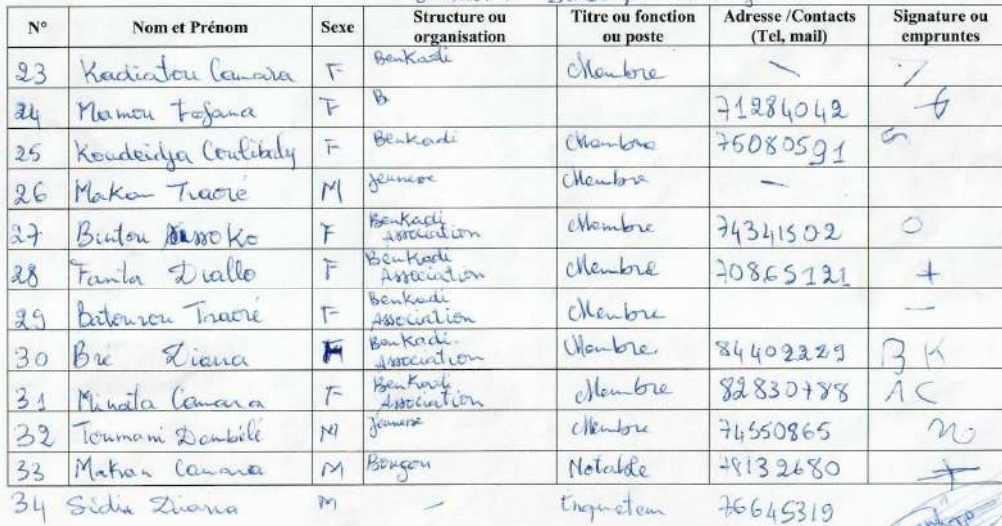 N° Nom et Prénom Sexe Structure ou organisation Titre ou fonction ou poste Adresse /Contacts (Tel, mail) Signature ou empruntes
23 Kadiatou Camara F BenKadi Membre –
24 Mamou Fofana F B 71284042
25 Koudeidja Coulibaly F Benkadi Membre 75080591
26 Makan Traoré M Jeunesse Membre –
27 Bintou F Benkadi Association Membre 74341502
28 Fanta Diallo F Benkadi Association Membre 70865121 +
29 Batourou Traoré F Benkadi Association Membre –
30 Bré Diarra F Benkadi Association Membre. 84402229 B K
31 Minata Camara F Benkadi Association Membre 82830788 A C
32 Toumani Dembélé M Jeunesse Membre 74550865
33 Makan Camara M Bougou Notable 78132680
34 Sidi Diarra M – Enqueteur 76645319